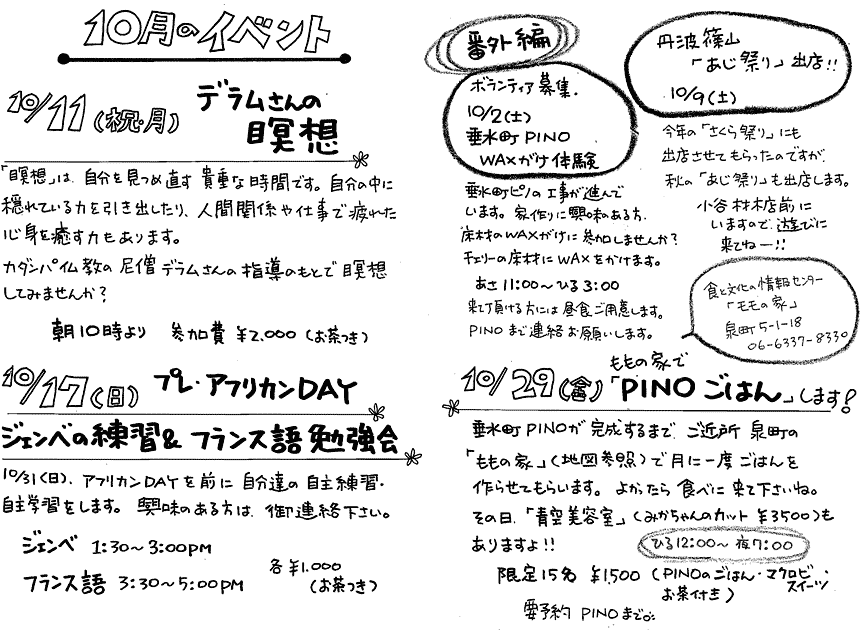 10月のイベント
10/11(祝・月) デラムさんの
瞑想
「瞑想」は、自分を見つめ直す貴重な時間です。自分の中に
穏れている力を引き出したり、人間関係や仕事で疲れた
心身を癒す力もあります。
カダンパイム教の尼僧デラムさんの指導のもとで瞑想
してみませんか?
朝10時より 参加費 ¥2,000 (お茶つき)
10/17(日) プレ・アフリカンDAY
ジェンベの練習&フランス語勉強会
10/31(日)、アフリカンDAYを前に自分達の自主練習・
自主学習をします。興味のある方は、御連絡下さい。
ジェンベ 1:30~3:00PM
フランス語 3:30~5:00PM
各¥1,000
(お茶つき)
番外編
ボランティア募集.
10/2(土)
垂水町PINO
WAXがけ体験
垂水町ピノの工事が進んで
います。家作りに興味のある方、
床材のWAXがけに参加しませんか?
チェリーの床材にWAXをかけます。
あさ11:00~ひる3:00
来て頂ける方には昼食ご用意します。
PINOまで連絡お願いします。
丹波篠山
「あじ祭り」出店!!
10/9(土)
今年の「さくら祭り」にも
出店させてもらったのですが、
秋の「あじ祭り」も出店します。
小谷材木店前に
いますので、遊びに
来てねー!!
食と文化の情報センター
「ももの家」
泉町5-1-18
06-6337-8330
ももの家で
10/29(金)「PINOごはん」します!
垂水町PINOが完成するまで、ご近所 泉町の
「ももの家」(地図参照)で月に一度ごはんを
作らせてもらいます。よかったら食べに来て下さいね。
その日、「青空美容室」(みかちゃんのカット ¥3500)も
ありますよ!!
ひる12:00~夜7:00
限定15名 ¥1,500 (PINOのごはん・マクロビ・
スイーツ
お茶付き)
要予約 PINOまで。